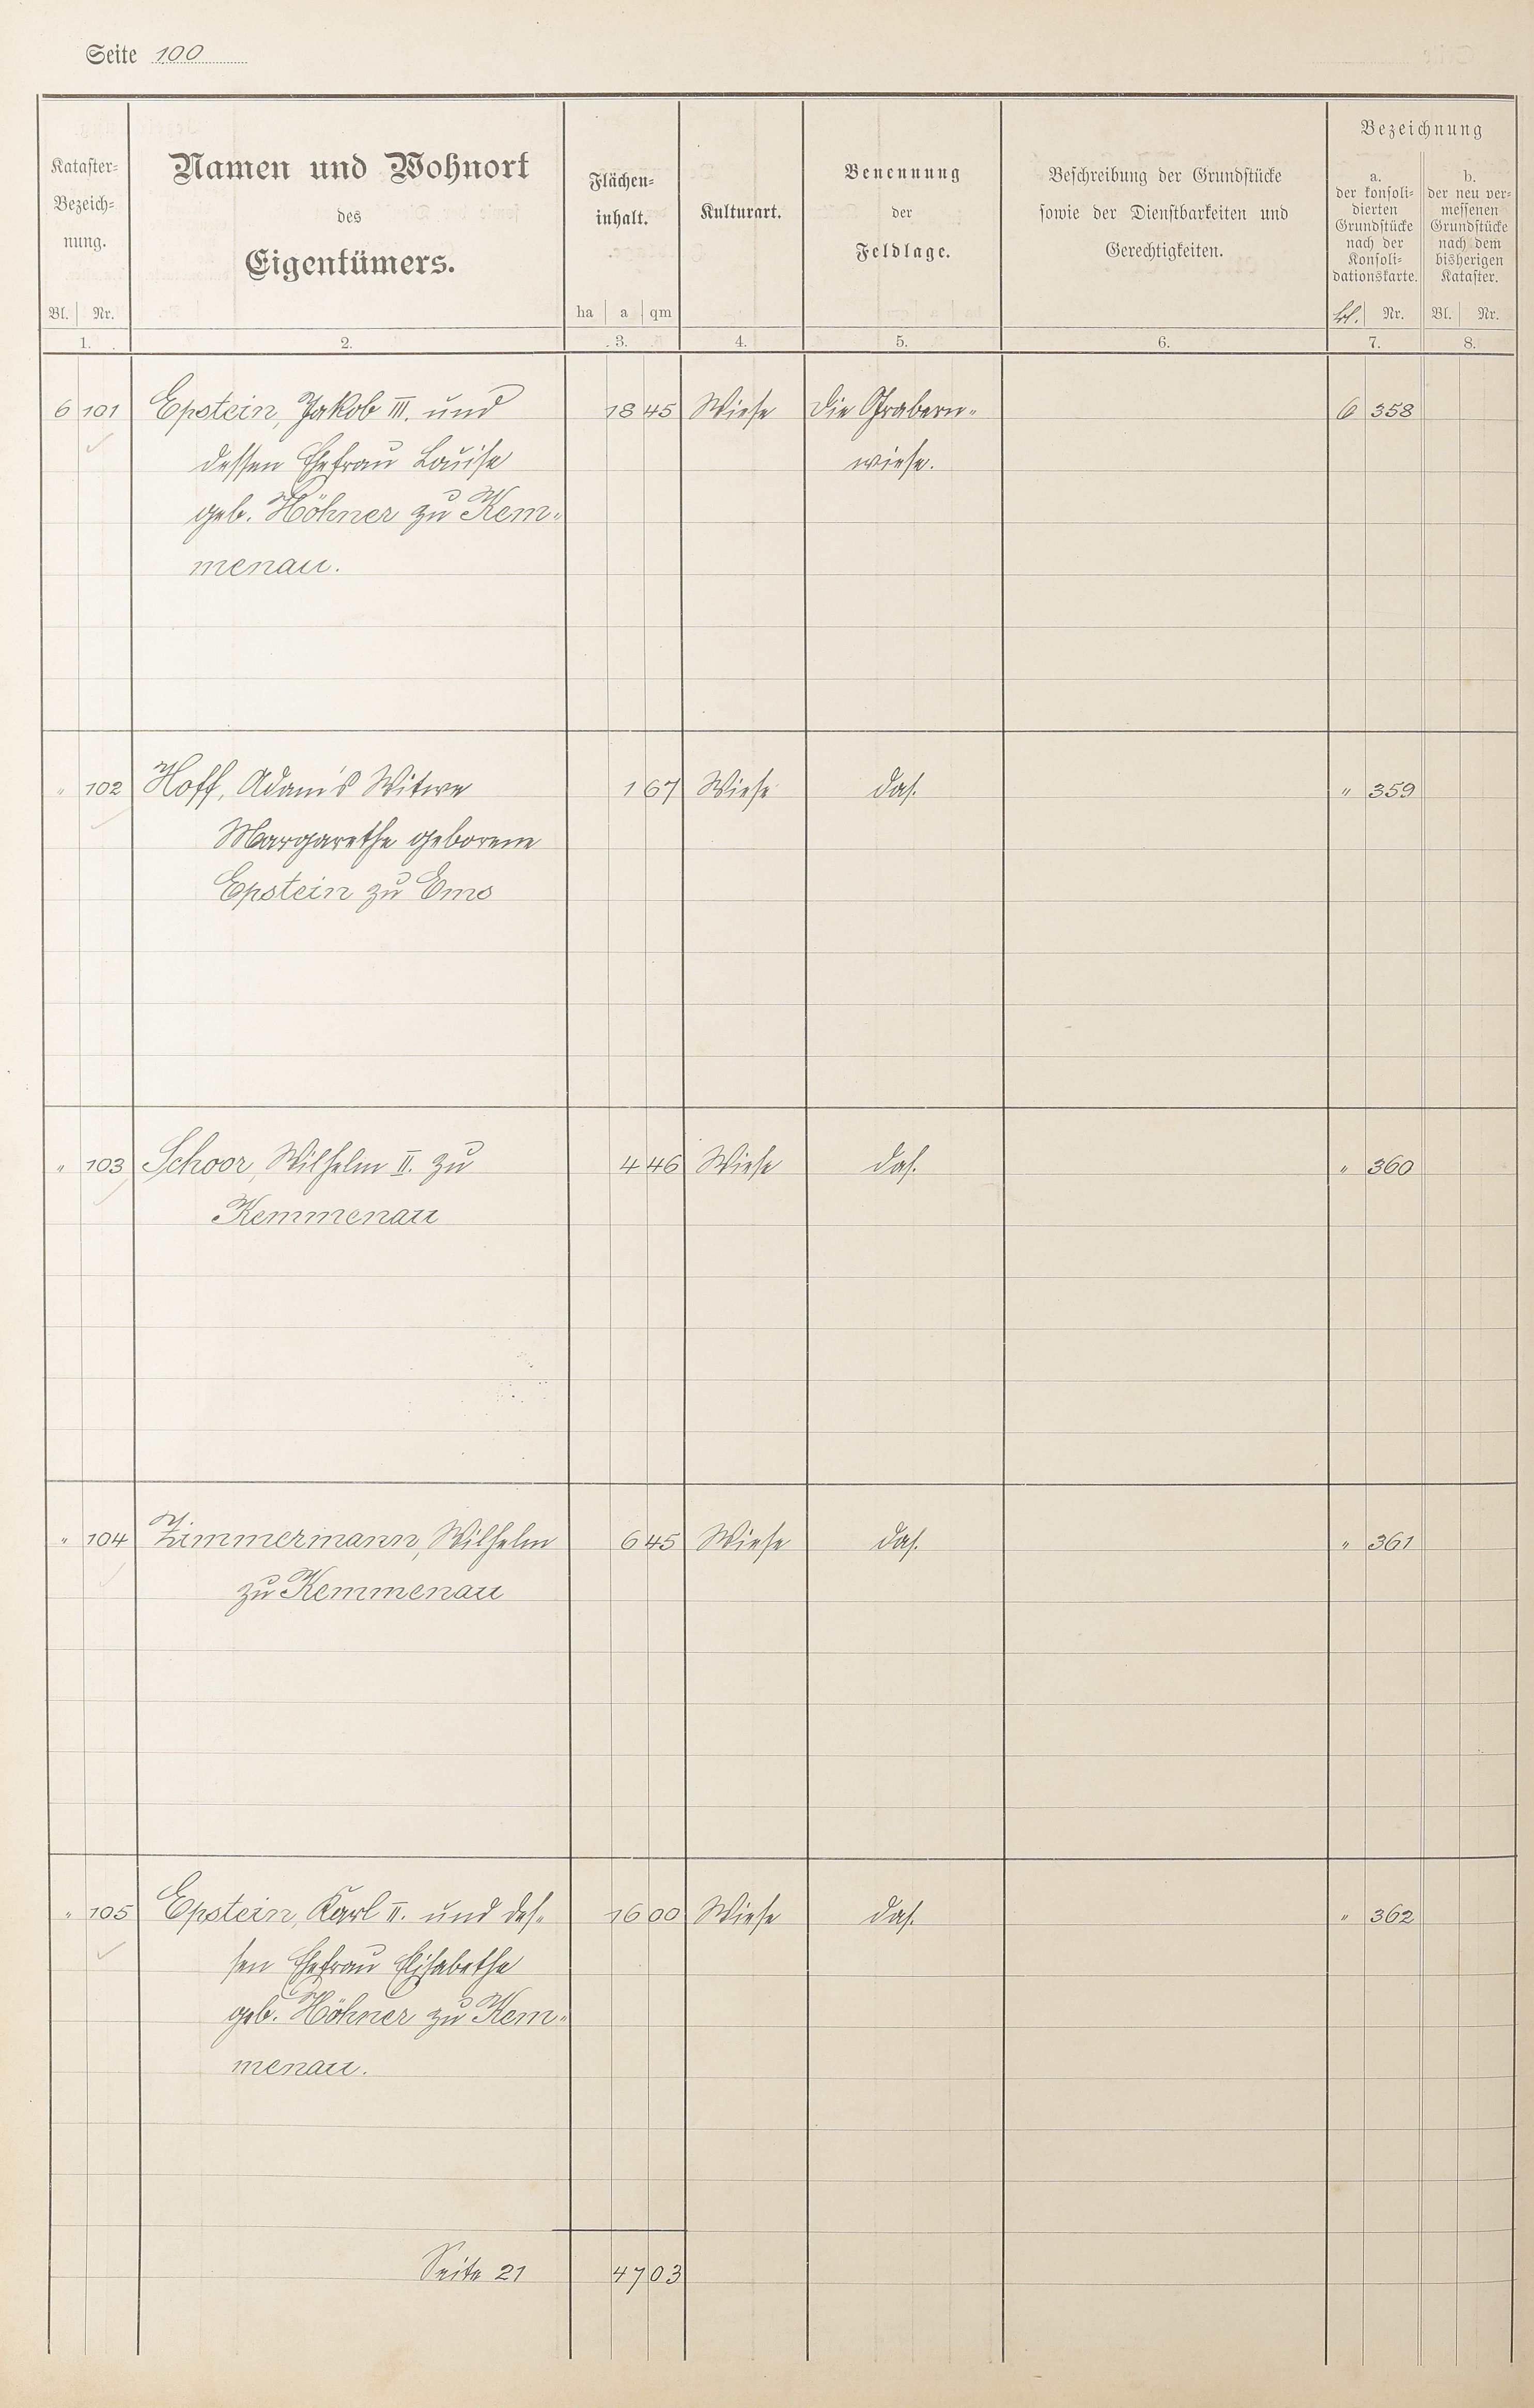 Seite 100
Kataster-
Bezeich-
nung.
Bl. Nr.
1.
Namen und Wohnort
des
Eigentümers.
2.
Flächen-
inhalt.
ha a qm
3.
Kulturart.
4.
Benennung
der
Feldlage.
5.
Beschreibung der Grundstücke
sowie der Dienstbarkeiten und
Gerechtigkeiten.
6.
Bezeichnung
a.
der konsoli-
dierten
Grundstücke
nach der
Konsoli-
dationskarte.
Bl. Nr.
7.
b.
der neu ver-
messenen
Grundstücke
nach dem
bisherigen
Kataster.
Bl. Nr.
8.
6 101 Epstein, Jakob III. und 18 45 Wiese die Grabern- 6 358
dessen Ehefrau Louise wiese.
geb. Höhner zu Kem-
menau.
" 102 Hoff, Adam's Witwe 1 67 Wiese das. " 359
Margarethe geborene
Epstein zu Ems
" 103 Schoor, Wilhelm II. zu 4 46 Wiese das. " 360
Kemmenau
" 104 Zimmermann, Wilhelm 6 45 Wiese das. " 361
zu Kemmenau
" 105 Epstein, Karl II. und des- 16 00 Wiese das. " 362
sen Ehefrau Elisabethe
geb. Höhner zu Kem-
menau.
Seite 21 47 03